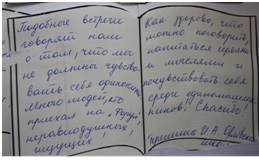 Подобные встречи
говорят нам
о том, что мы
не должны чувство-
вать себя одиноким.
Много людей, кто
приехал на "Форум",
неравнодушных,
ищущих!
Как здорово, что
можно поговорить,
напитаться идеями
и мыслями и
почувствовать себя
среди единомышлен-
ников. Спасибо!
И.А.